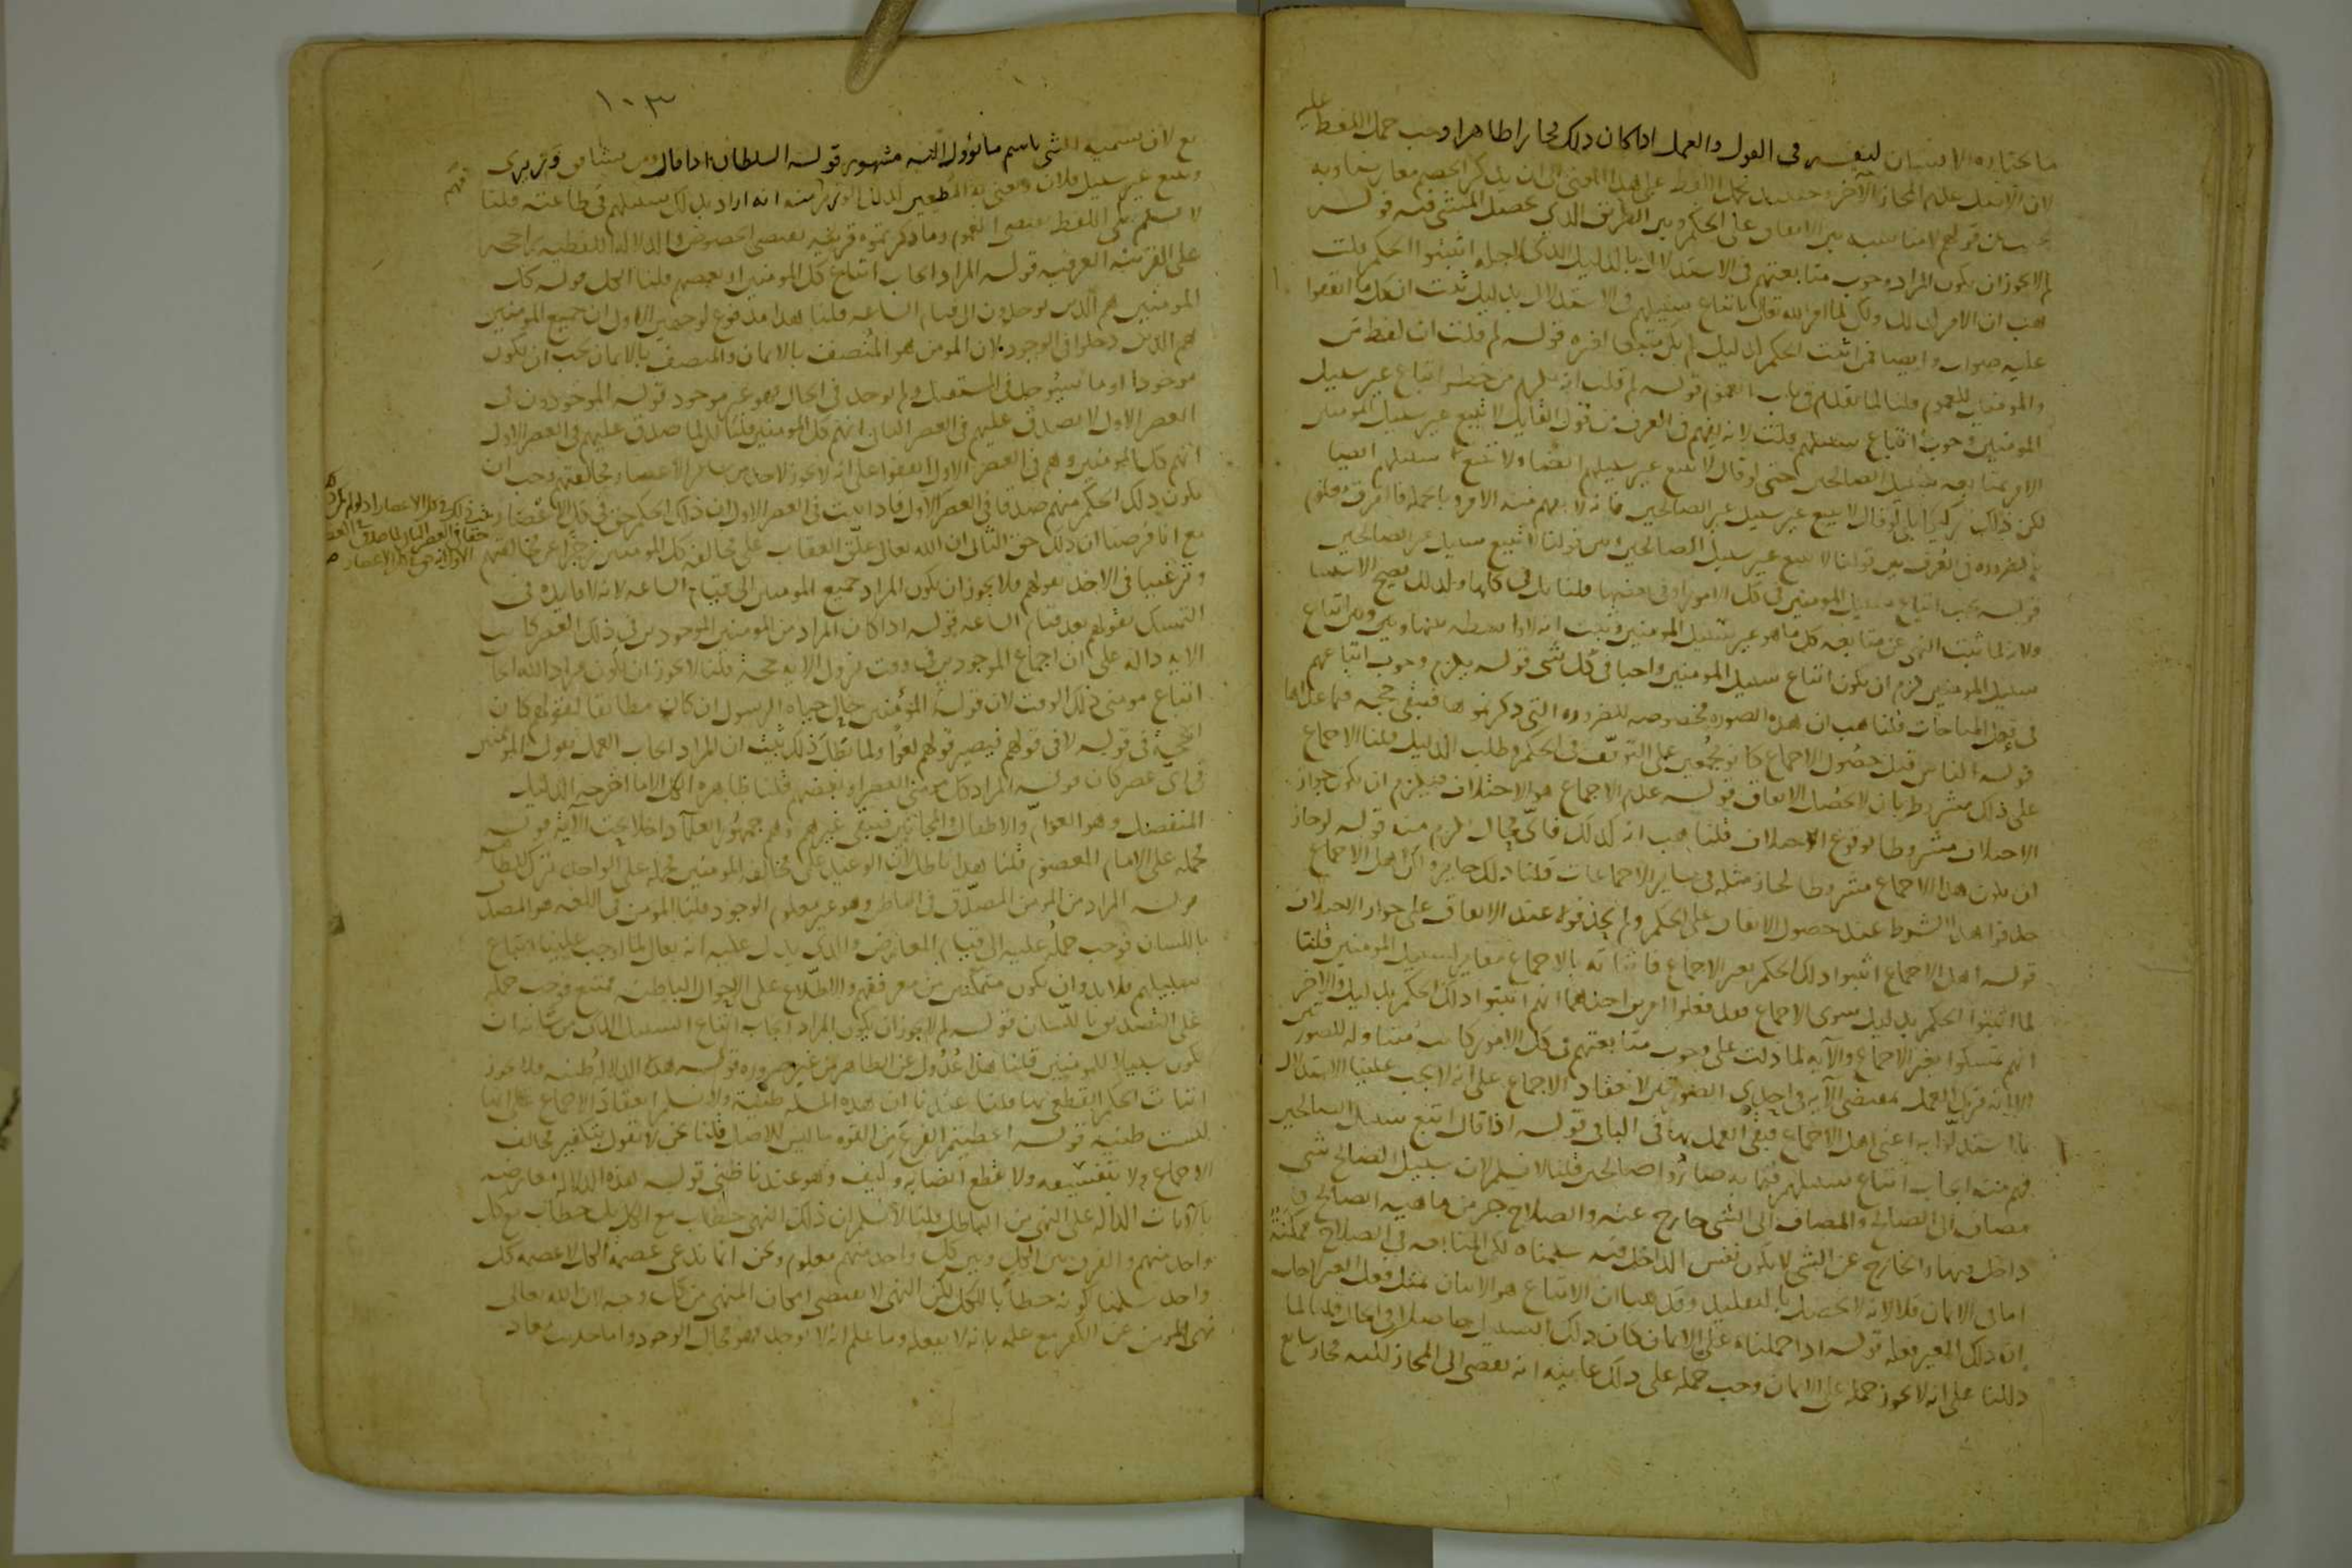 ما يختاره الانسان لنفسه في القول والعمل اذا كان ذلك مجازا ظاهرا وجب حمل اللفظ عليه
لان الاصل عدم المجاز الآخر
لم لا يجوز ان يكون المراد وجوب متابعتهم في الاستدلال بالدليل الذي لاجله اثبتوا الحكم قلت
هب ان الامر كذلك ولكن لما امر الله تعالى باتباع سبيلهم في الاستدلال بدليل ثبت ان كل ما اتفقوا
عليه صواب وايضا فمن اثبت الحكم لدليل لم يكن متبعا لغيره قوله لم قلت ان لفظ من
والمومنين للعموم قلنا لما تقدم في باب العموم قوله لم قلت انه يلزم من حظر اتباع غير سبيل
المومنين وجوب اتباع سبيلهم قلت لانه يفهم في العرف من قول القايل لا تتبع غير سبيل المومنين
الامر بمتابعة سبيل الصالحين حتى لو قال لا تتبع غير سبيلهم ايضا ولا تتبع سبيلهم ايضا
لكن ذلك ركيكا بلى لو قال لا تتبع سبيل غير الصالحين فانه لا يفهم منه الامر وبالجملة فالفرق معلوم
بالضرورة في العرف بين قولنا لا تتبع غير سبيل الصالحين وبين قولنا لا تتبع سبيل غير الصالحين
قوله يجب اتباع سبيل المومنين في كل الامور او في بعضها قلنا بل في كلها ولذلك يصح الاستثنا
ولانه لما ثبت النهي عن متابعة كل ما هو غير سبيل المومنين وثبت انه لا واسطة بينها وبين اتباع
سبيل المومنين لزم ان يكون اتباع سبيل المومنين واجبا في كل شي قوله يلزم وجوب اتباعهم
في فعل المباحات قلنا هب ان هذه الصورة مخصوصة للضرورة التي ذكرتموها فيبقى حجة فيما عداها
قوله الناس قبل حصول الاجماع كانوا مجمعين على التوقف في الحكم وطلب الدليل قلنا الاجماع
على ذلك مشروط بان لا يحصل الاتفاق قوله عدم الاجماع هو الاختلاف فيلزم ان يكون جواز
الاختلاف مشروطا بوقوع الاختلاف قلنا هب انه كذلك فاي محال يلزم منه قوله لو جاز
ان يكون هذا الاجماع مشروطا لجاز مثله في ساير الاجماعات قلنا ذلك جايز ولكن اهل الاجماع
حذفوا هذا الشرط عند حصول الاتفاق على الحكم ولم يحذفوه عند الاتفاق على جواز الاختلاف
قوله اهل الاجماع اثبتوا ذلك الحكم بغير الاجماع فاثباته بالاجماع مغاير لسبيل المومنين قلنا
لما اثبتوا الحكم بدليل سوى الاجماع فقد فعلوا امرين احدهما انهم اثبتوا ذلك الحكم بدليل والاخر
انهم تمسكوا بغير الاجماع والآية لما دلت على وجوب متابعتهم في كل الامور كانت متناولة للصورتين
الا انه ترك العمل بمقتضى الآية في احدى الصورتين لانعقاد الاجماع على انه لا يجب علينا الاستدلال
بما استدلوا به اعني اهل الاجماع فبقي العمل بها في الباقي قوله اذا قال اتبع سبيل الصالحين
فهم منه ايجاب اتباع سبيلهم فيما به صاروا صالحين قلنا لا نسلم لان سبيل الصالح شي
مضاف الى الصالح والمضاف الى الشي خارج عنه والصلاح جزء من ماهية الصالح
داخل فيها والخارج عن الشي لا يكون نفس الداخل فيه سلمناه لكن المتابعة في الصلاح ممكنة
اما في الايمان فلا لانه لا يحصل بالتقليد وقد بينا ان الاتباع هو الاتيان بمثل فعل الغير لاجل
ان ذلك الغير فعله قوله اذا حملناه على الايمان كان ذلك السبيل حاصلا في الحال قلنا لما
دللنا على انه لا يجوز حمله على الايمان وجب حمله على ذلك غايته انه يفضي الى المجاز لكنه مجاز سايغ
١٠٣
لان تسمية الشي باسم ما يؤول اليه مشهور قوله السلطان اذا قال ومن يشاقق وزيري
ويتبع غير سبيل فلان ويعني به المطيعين لذلك الوزير فهم منه انه اراد بذلك سبيلهم في طاعته قلنا
لا نسلم بل اللفظ يقتضي العموم وما ذكرتموه قرينة تقتضي الخصوص والدلالة اللفظية راجحة
على القرينة العرفية قوله المراد ايجاب اتباع كل المومنين او بعضهم قلنا الكل قوله كل
المومنين هم الذين يوجدون الى قيام الساعة قلنا هذا مدفوع لوجهين الاول ان جميع المومنين
هم الذين دخلوا في الوجود لان المومن هو المتصف بالايمان والمتصف بالايمان يجب ان يكون
موجودا وما سيوجد في المستقبل ولم يوجد في الحال فهو غير موجود قوله الموجودون في
العصر الاول لا يصدق عليهم في العصر الثاني انهم كل المومنين قلنا لكن لما صدق عليهم في العصر الاول
انهم كل المومنين وهم في العصر الاول اتفقوا على انه لا يجوز لاحد من ساير الاعصار مخالفتهم وجب ان
يكون ذلك الحكم منهم صدقا في العصر الاول فاذا ثبت في العصر الاول ان ذلك الحكم حق في كل الاعصار
مع انا فرضنا ان ذلك حق الثاني ان الله تعالى علق العقاب على مخالفة كل المومنين زجرا عن مخالفتهم
وترغيبا في الاخذ بقولهم فلا يجوز ان يكون المراد جميع المومنين الى قيام الساعة لانه لا فايدة في
التمسك بقولهم بعد قيام الساعة قوله اذا كان المراد من المومنين الموجودين في ذلك العصر كانت
الاية دالة على ان اجماع الموجودين في وقت نزول الاية حجة قلنا لا يجوز ان يكون مراد الله ايجاب
اتباع مومني ذلك الوقت لان قول المؤمنين حال حياة الرسول ان كان مطابقا لقوله كان
الحجة في قوله لا في قولهم فيصير قولهم لغوا ولما بطل ذلك ثبت ان المراد ايجاب العمل بقول المومنين
في اي عصر كان قوله المراد كل مومني العصر او بعضهم قلنا ظاهره الكل الا ما اخرجه الدليل
المنفصل وهو العوام والاطفال والمجانين فيبقى غيرهم وهم جمهور العلمآ داخلا تحت الآية قوله
نحمله على الامام المعصوم قلنا هذا باطل لان الوعيد على مخالفة المومنين فحمله على الواحد ترك للظاهر
قوله المراد من المومن المصدق في الباطن وهو غير معلوم الوجود قلنا المومن في اللغة هو المصدق
باللسان فوجب حمله عليه الى قيام المعارض والذي يدل عليه انه تعالى لما اوجب علينا اتباع
سبيلهم فلا بد وان نكون متمكنين من معرفتهم والاطلاع على الاحوال الباطنة ممتنع فوجب حمله
على التصديق باللسان قوله لم لا يجوز ان يكون المراد ايجاب اتباع السبيل الذي من شانه ان
يكون سبيلا للمومنين قلنا هذا عدول عن الظاهر من غير ضرورة قوله هذه الدلالة ظنية فلا يجوز
اثبات الحكم القطعي بها قلنا عندنا ان هذه المسلة ظنية ولا نسلم انعقاد الاجماع على انها
ليست ظنية قوله اعطيتم الفرع من القوة ما ليس للاصل قلنا نحن لا نقول بتكفير مخالف
الاجماع ولا بتفسيقه ولا نقطع ايضا به وكيف وهو عندنا ظني قوله هذه الدلالة معارضة
بالايات الدالة على النهي عن الباطل قلنا لا نسلم ان ذلك النهي خطاب مع الكل بل خطاب مع كل
واحد منهم والفرق بين الكل وبين كل واحد منهم معلوم ونحن انما ندعي عصمة الكل لا عصمة كل
واحد سلمنا كونه خطابا للكل لكن النهي لا يقتضي امكان المنهي من كل وجه لان الله تعالى
نهى المومن عن الكفر مع علمه بانه لا يفعله وما علم انه لا يوجد فهو محال الوجود واما حديث معاذ